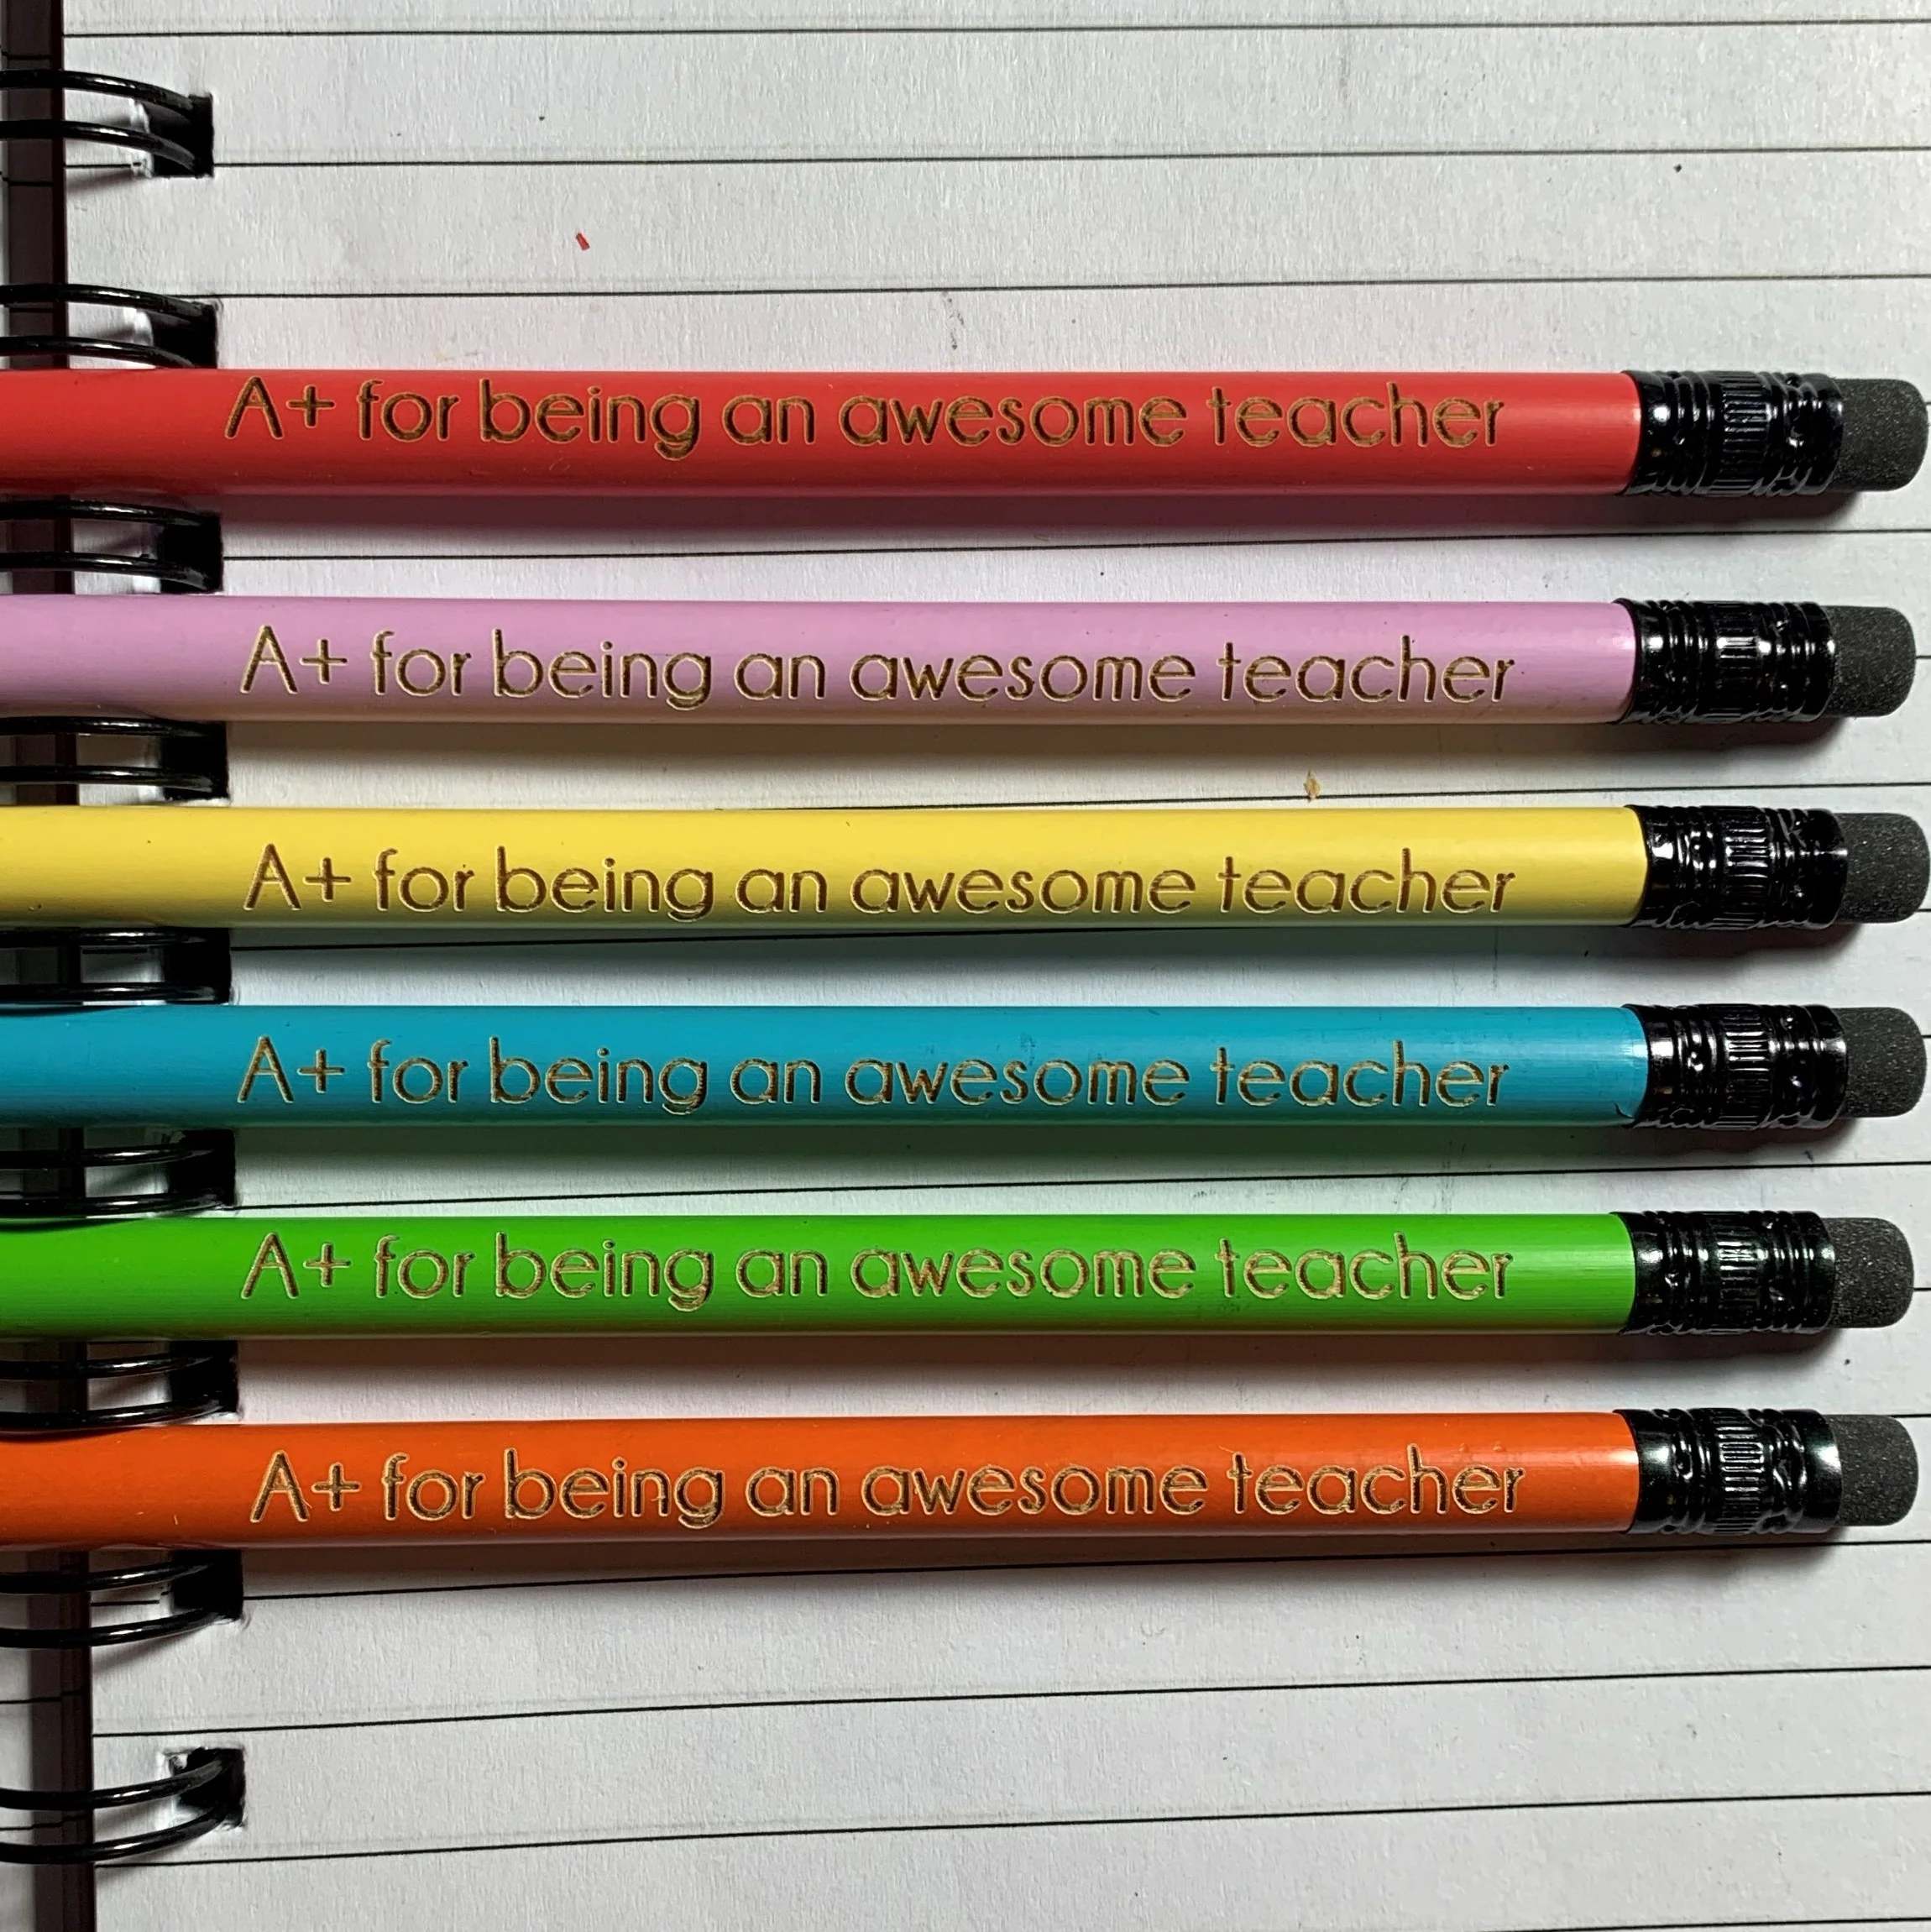 A+ for being an awesome teacher
A+ for being an awesome teacher
A+ for being an awesome teacher
A+ for being an awesome teacher
A+ for being an awesome teacher
A+ for being an awesome teacher